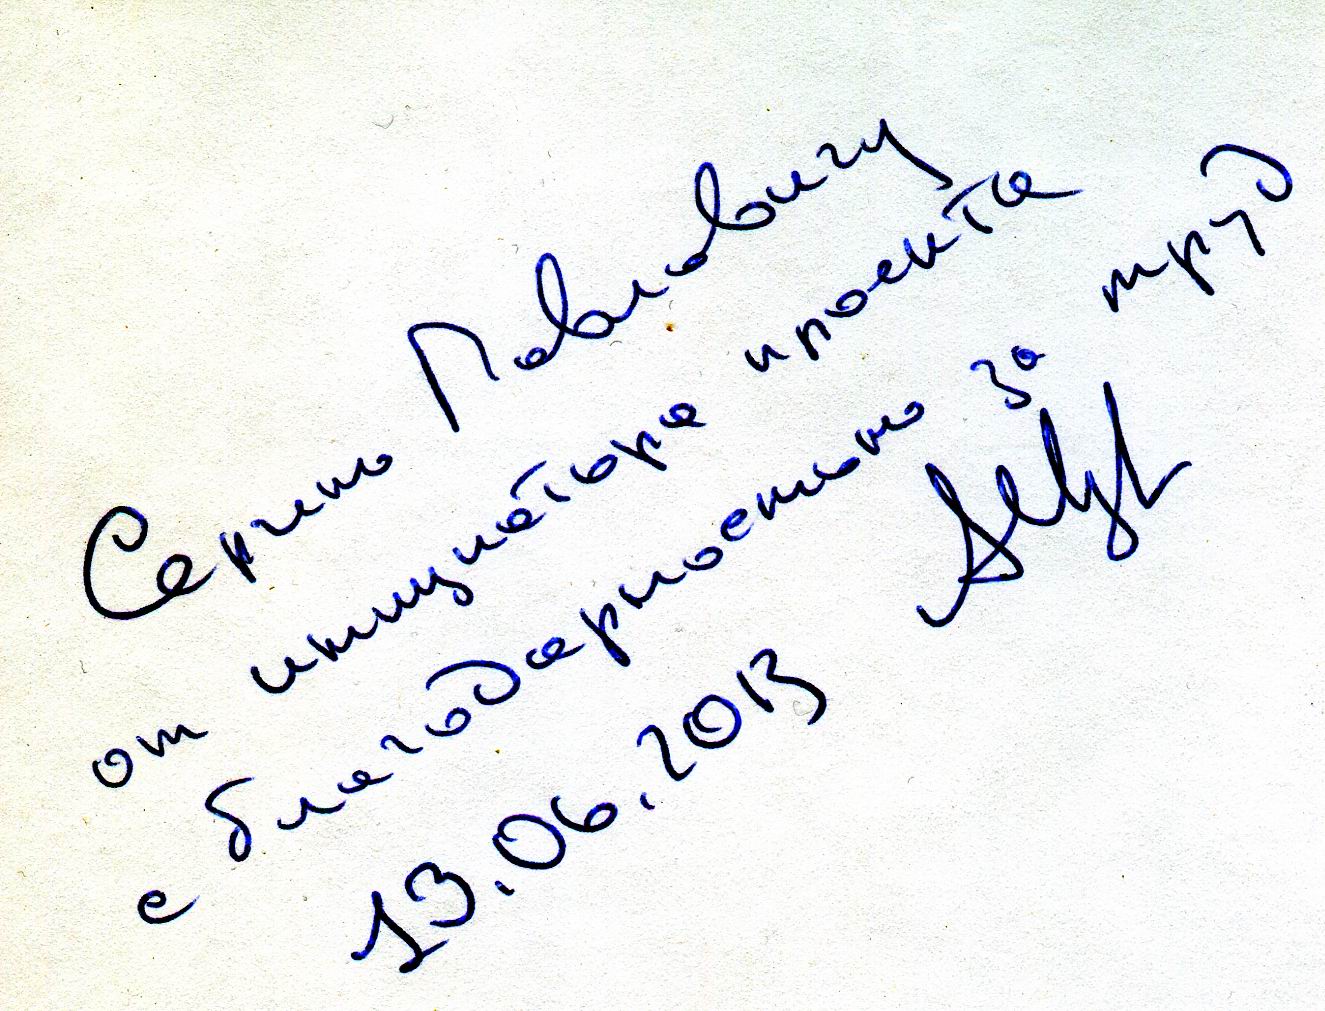 Сергею Павловичу
от инициатора проекта
с благодарностью за труд
13.06.2013